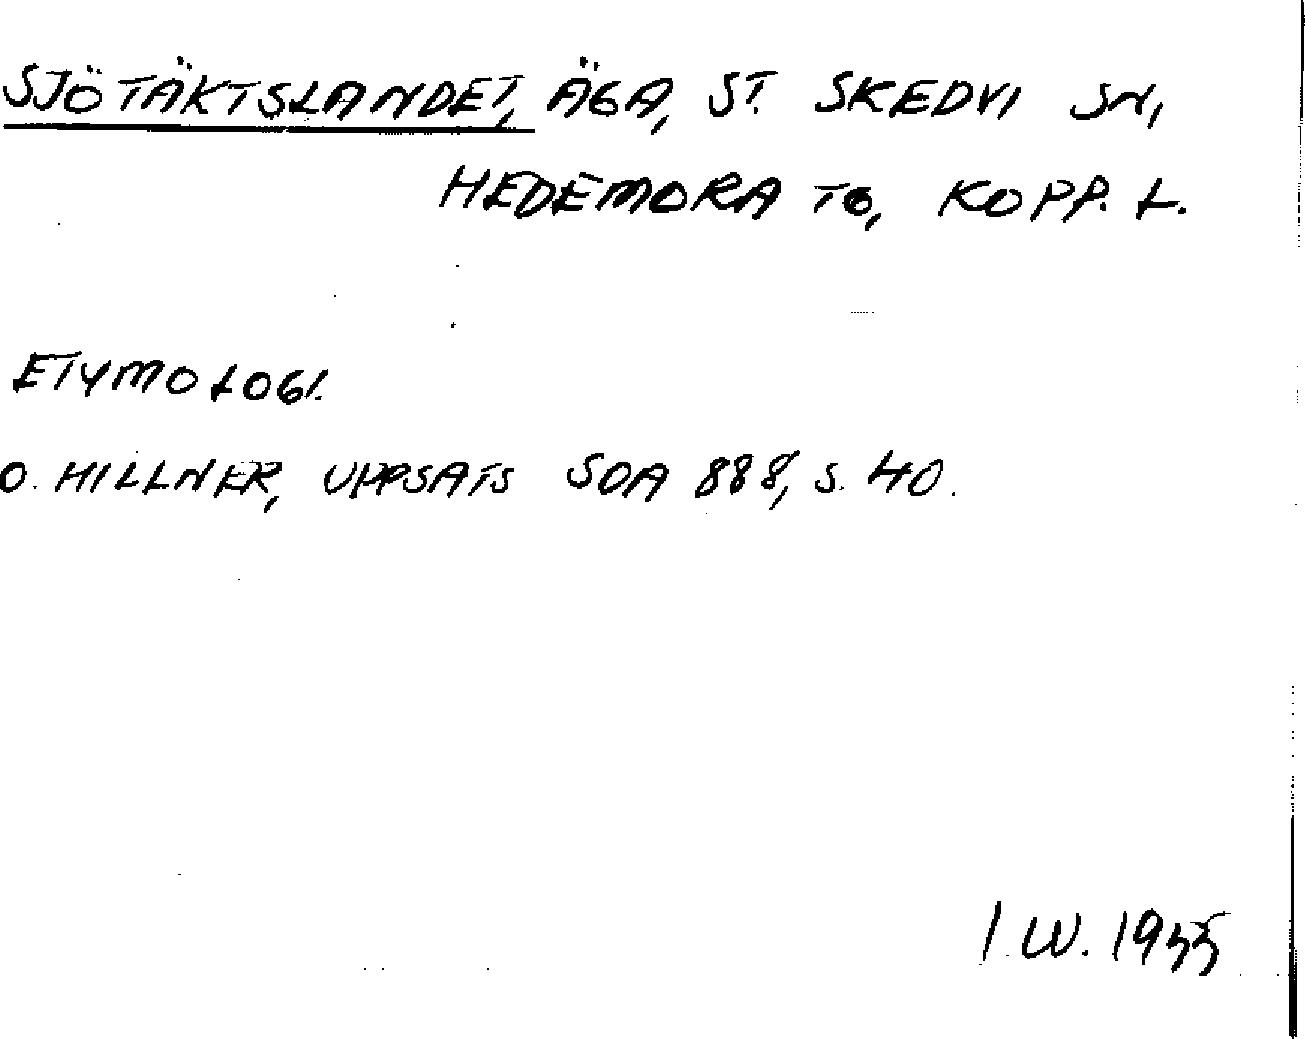 SJÖTÄKTSLANDET, ÄGA, ST. SKEDVI SN,
HEDEMORA TG, KOPP. L.
ETYMOLOGI.
O. HILLNER, UPPSATS SOA 888, S. 40.
I. W. 1955